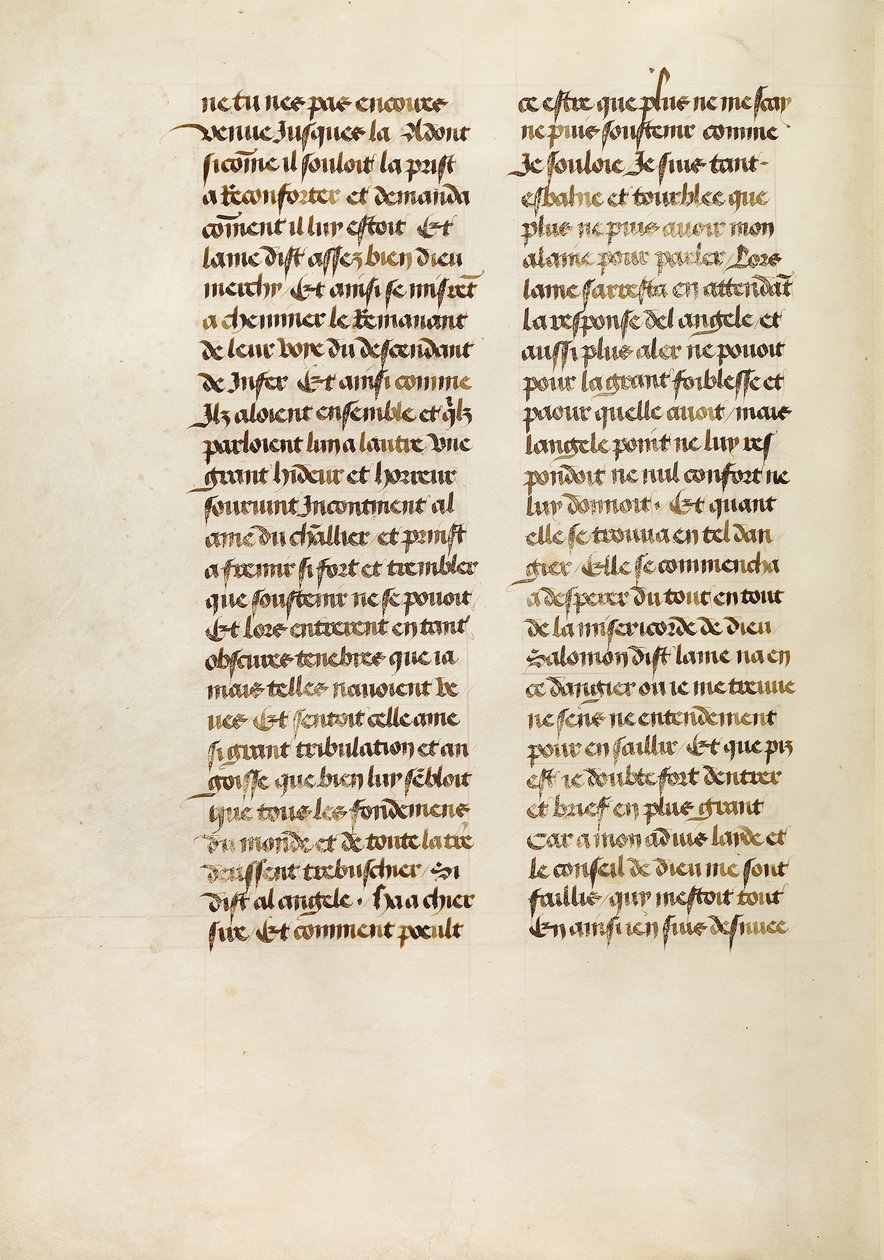 ne tu nes pas encoures
venue Jusques la Adont
si com̄e il souloit la prist
a Reconforter et demanda
com̄ent il luy estoit Et
lame dist assez bien dieu
merchy / Et ainsi se misrēt
a cheminer le Remanant
de leur voye du descendant
de Infer Et ainsi comme
Ilz aloient ensemble et q̄lz
parloient lun a lautre / vne
grant hideur et horreur
souruint Incontinent al
ame du chāllier / et prinst
a fremir si fort et trembler
que soustenir ne se pouoit /
Et lors entrerent en tant
obscures tenebres que ia
mais telles nauoient ve
ues Et sentoit celle ame
si grant tribulation et an
goisse que bien luy sēbloit
que tous les fondemens
du monde et de toute la tr̄e
deussent trebuschier / Si
dist al angele . ha a chier
sire / Et comment poeult
ce estre que plus ne me scay
ne puis soustenir comme
Je souloie Je suis tant
esbahie et tourblee que
plus ne puis auoir mon
alaine pour parler / Lors
lame sarresta en attendāt
la response del angele / et
aussi plus aler ne pouoit
pour la grant foiblesse et
paour quelle auoit / mais
langele point ne luy res
pondoit ne nul confort ne
luy donnoit . Et quant
elle se trouua en tel dan
gier / Elle se commencha
a desperer du tout en tout
de la misericorde de dieu
Salomon dist lame na en
ce dangier ou ie me treuue
ne sens ne entendement
pour en saillir Et que piz
est ie doubte fort dentrer
et brief en plus grant
Car a mon aduis laide et
le conseil de dieu me sont
faillis / quy mestoit tout
En ainsi ien suis desnuee